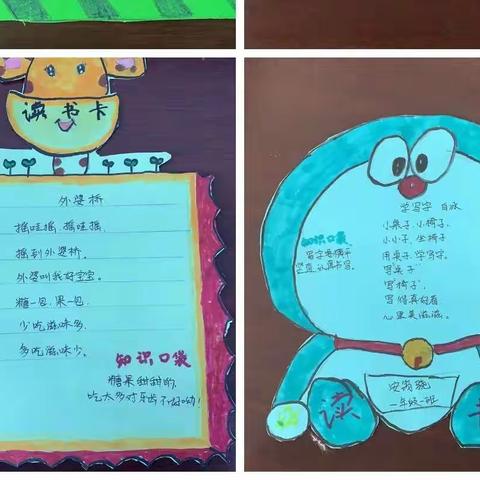 读书卡
外婆桥
摇哇摇、摇哇摇、
摇到外婆桥。
外婆叫我好宝宝。
糖一包、果一包、
少吃滋味多、
多吃滋味少。
知识口袋
糖果甜甜的,
吃太多对牙齿不好呦!
学写字
小桌子、小椅子、
小小子、坐椅子
用桌子、学写字。
写"桌子"、
写"椅子"、
心里美滋滋。
知识口袋
一年级一班
读